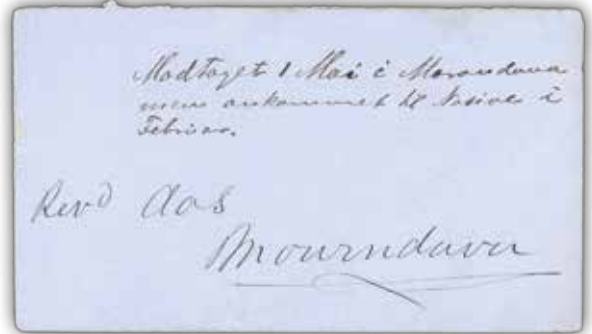 Modtaget 1 Mai i Morondava
men ankommet til Nosivee i
Februar.
Revd Aas
Mourndava